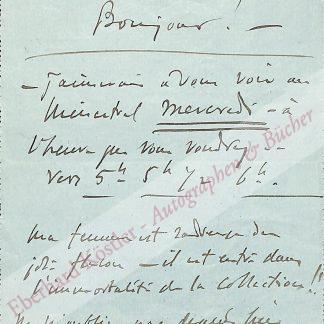 Bonjour! —
— J'aimerais à vous voir au
Ministral Mercredi — à
l'heure que vous voudrez —
vers 5h 5h ½ 6h.
Ma femme est
joli flacon — il est entré dans
l'immortalité de la collection!!
Eberhard Köstler - Autographen & Bücher